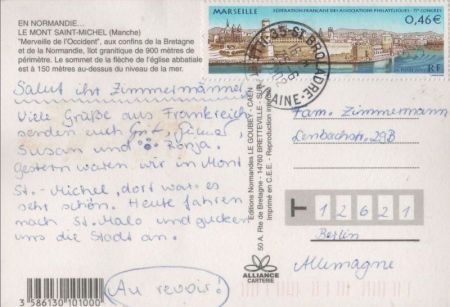 EN NORMANDIE...
LE MONT SAINT-MICHEL (Manche)
"Merveille de l'Occident", aux confins de la Bretagne
et de la Normandie, îlot granitique de 900 mètres de
périmètre. Le sommet de la flèche de l'église abbatiale
est à 150 mètres au-dessus du niveau de la mer.
Salut ihr Zimmermänner
Viele Grüße aus Frankreich
senden euch
Susan und Ronja.
Gestern waren wir in Mont
St.-Michel, dort war es
sehr schön. Heute fahren
nach St. Malo und gucken
uns die Stadt an.
Au revoir!
3 586130 101000
Editions Normandes LE GOUBEY - CAEN
50 A, Rte de Bretagne - 14760 BRETTEVILLE - SUR -
Imprimé en C.E.E. - Reproduction inter
ALLIANCE
CARTERIE
MARSEILLE
FEDERATION FRANÇAISE DES ASSOCIATIONS PHILATELIQUES - 75e CONGRES
0,46 €
RF
ST-BROLADRE
Fam. Zimmermann
Lenbachstr. 29B
T 12621
Berlin
Allemagne